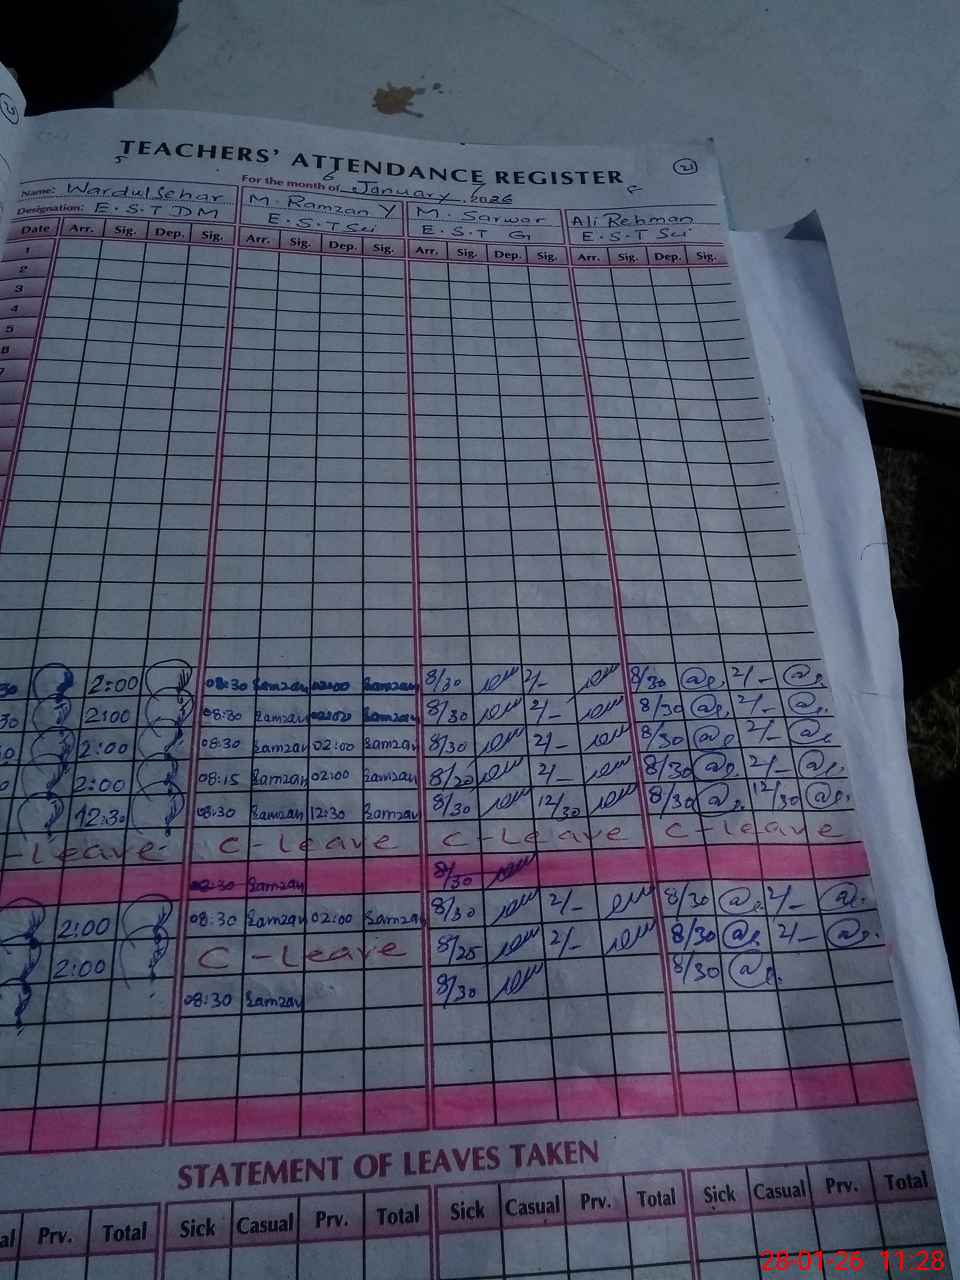 21
TEACHERS' ATTENDANCE REGISTER
5 6 7 8
For the month of January 2026
Name: Wardulsehar M. Ramzan Y M. Sarwar Ali Rehman
Designation: E.S.T DM E.S.T Sci E.S.T G E.S.T Sci
Date Arr. Sig. Dep. Sig. Arr. Sig. Dep. Sig. Arr. Sig. Dep. Sig. Arr. Sig. Dep. Sig.
1
2
3
4
5
6
7
30 2:00 08:30 Ramzan 02:00 Ramzan 8/30 2/- 8/30 2/-
30 2:00 08:30 Ramzan 02:00 Ramzan 8/30 2/- 8/30 2/-
2:00 08:30 Ramzan 02:00 Ramzan 8/30 2/- 8/30 2/-
2:00 08:15 Ramzan 02:00 Ramzan 8/20 2/- 8/30 2/-
12:30 08:30 Ramzan 12:30 Ramzan 8/30 12/30 8/30 12/30
-Leave C-Leave C-Leave C-Leave
08:30 Ramzan 8/30
2:00 08:30 Ramzan 02:00 Ramzan 8/30 2/- 8/30 2/-
2:00 C-Leave 8/25 2/- 8/30 2/-
08:30 Ramzan 8/30 8/30
STATEMENT OF LEAVES TAKEN
al Prv. Total Sick Casual Prv. Total Sick Casual Prv. Total Sick Casual Prv. Total
28-01-26 11:28